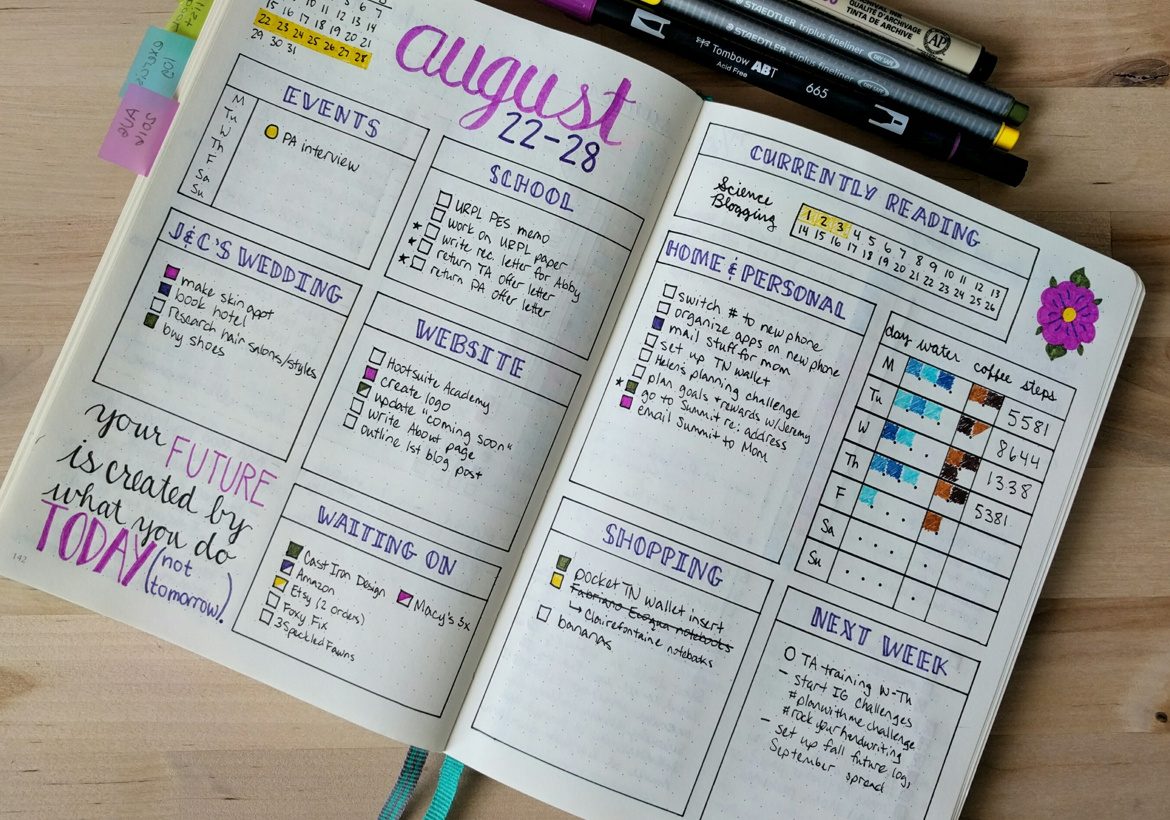 15 16 17 18 19 20 21
22 23 24 25 26 27 28
29 30 31
august
22-28
EVENTS
M
Tu
W
Th
F
Sa
Su
PA interview
SCHOOL
URPL PES memo
work on URPL paper
write rec. letter for Abby
return TA offer letter
return PA offer letter
J&C'S WEDDING
make skin appt
book hotel
research hair salons/styles
buy shoes
WEBSITE
Hootsuite Academy
create logo
update "coming soon"
write About page
outline 1st blog post
your FUTURE
is created by
what you do
TODAY (not
tomorrow!)
142
WAITING ON
Cast Iron Design
Amazon
Macy's 5x
Etsy (2 orders)
Foxy Fix
3 Speckled Fawns
CURRENTLY READING
Science
Blogging
1 2 3 4 5 6 7 8 9 10 11 12 13
14 15 16 17 18 19 20 21 22 23 24 25 26
HOME & PERSONAL
switch # to new phone
organize apps on new phone
mail stuff for mom
set up TN wallet
Helen's planning challenge
plan goals + rewards w/Jeremy
go to Summit re: address
email Summit to Mom
day water coffee steps
M 5581
Tu 8644
W 1338
Th 5381
F
Sa
Su
SHOPPING
pocket TN wallet insert
Fabriano Ecoqua notebooks
Clairefontaine notebooks
bananas
NEXT WEEK
TA training W-Th
- start IG challenges
#planwithmechallenge
#rockyourhandwriting
- set up fall future log,
September spread
QUALITÉ D'ARCHIVAGE
TINTA DE ARCHIVE
AP
STAEDTLER triplus fineliner DRY SAFE
STAEDTLER triplus fineliner DRY SAFE
Tombow ABT 665
Acid Free